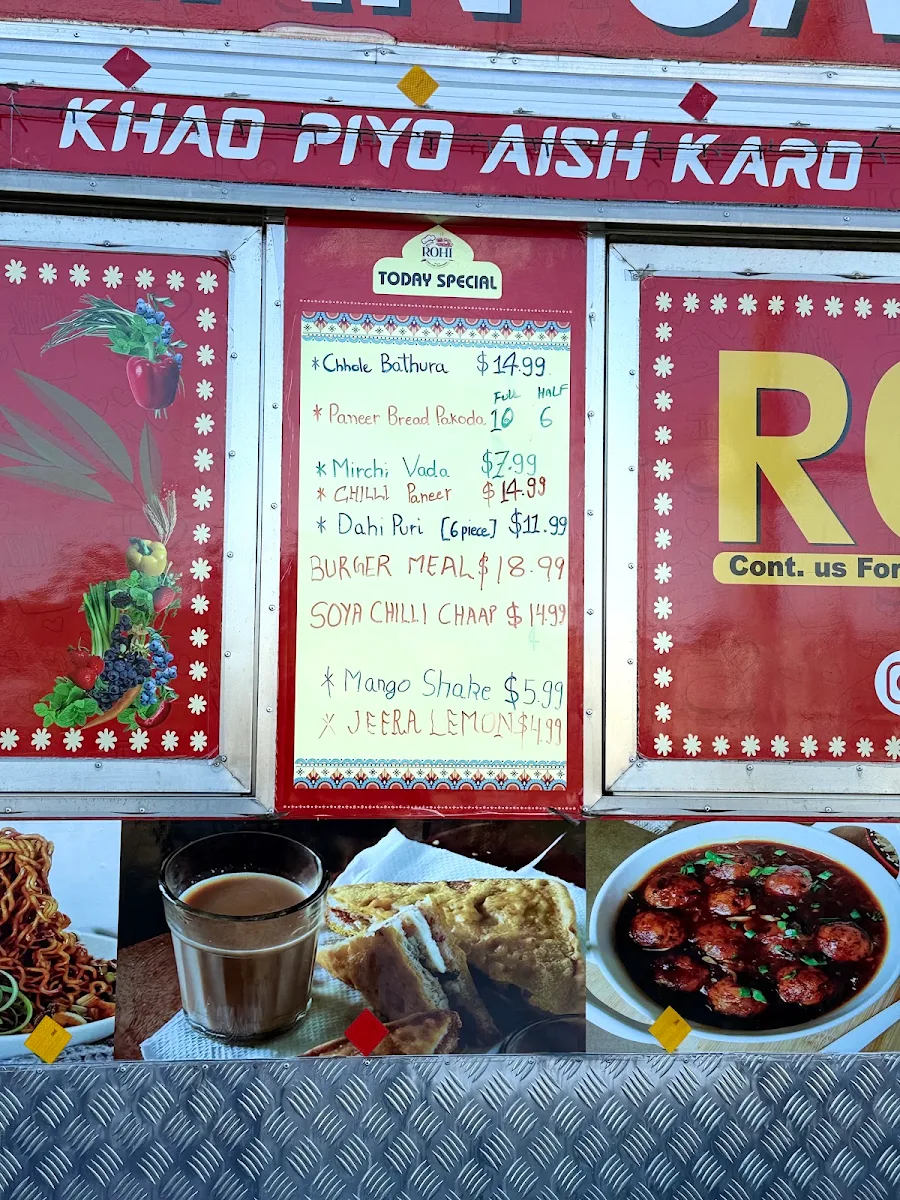 KHAO PIYO AISH KARO
ROHI
TODAY SPECIAL
*Chhole Bathura $14.99
Full HALF
*Paneer Bread Pakoda 10 6
*Mirchi Vada $7.99
*CHILLI Paneer $14.99
*Dahi Puri [6 piece] $11.99
BURGER MEAL $18.99
SOYA CHILLI CHAAP $14.99
*Mango Shake $5.99
*JEERA LEMON $4.99
Cont. us For